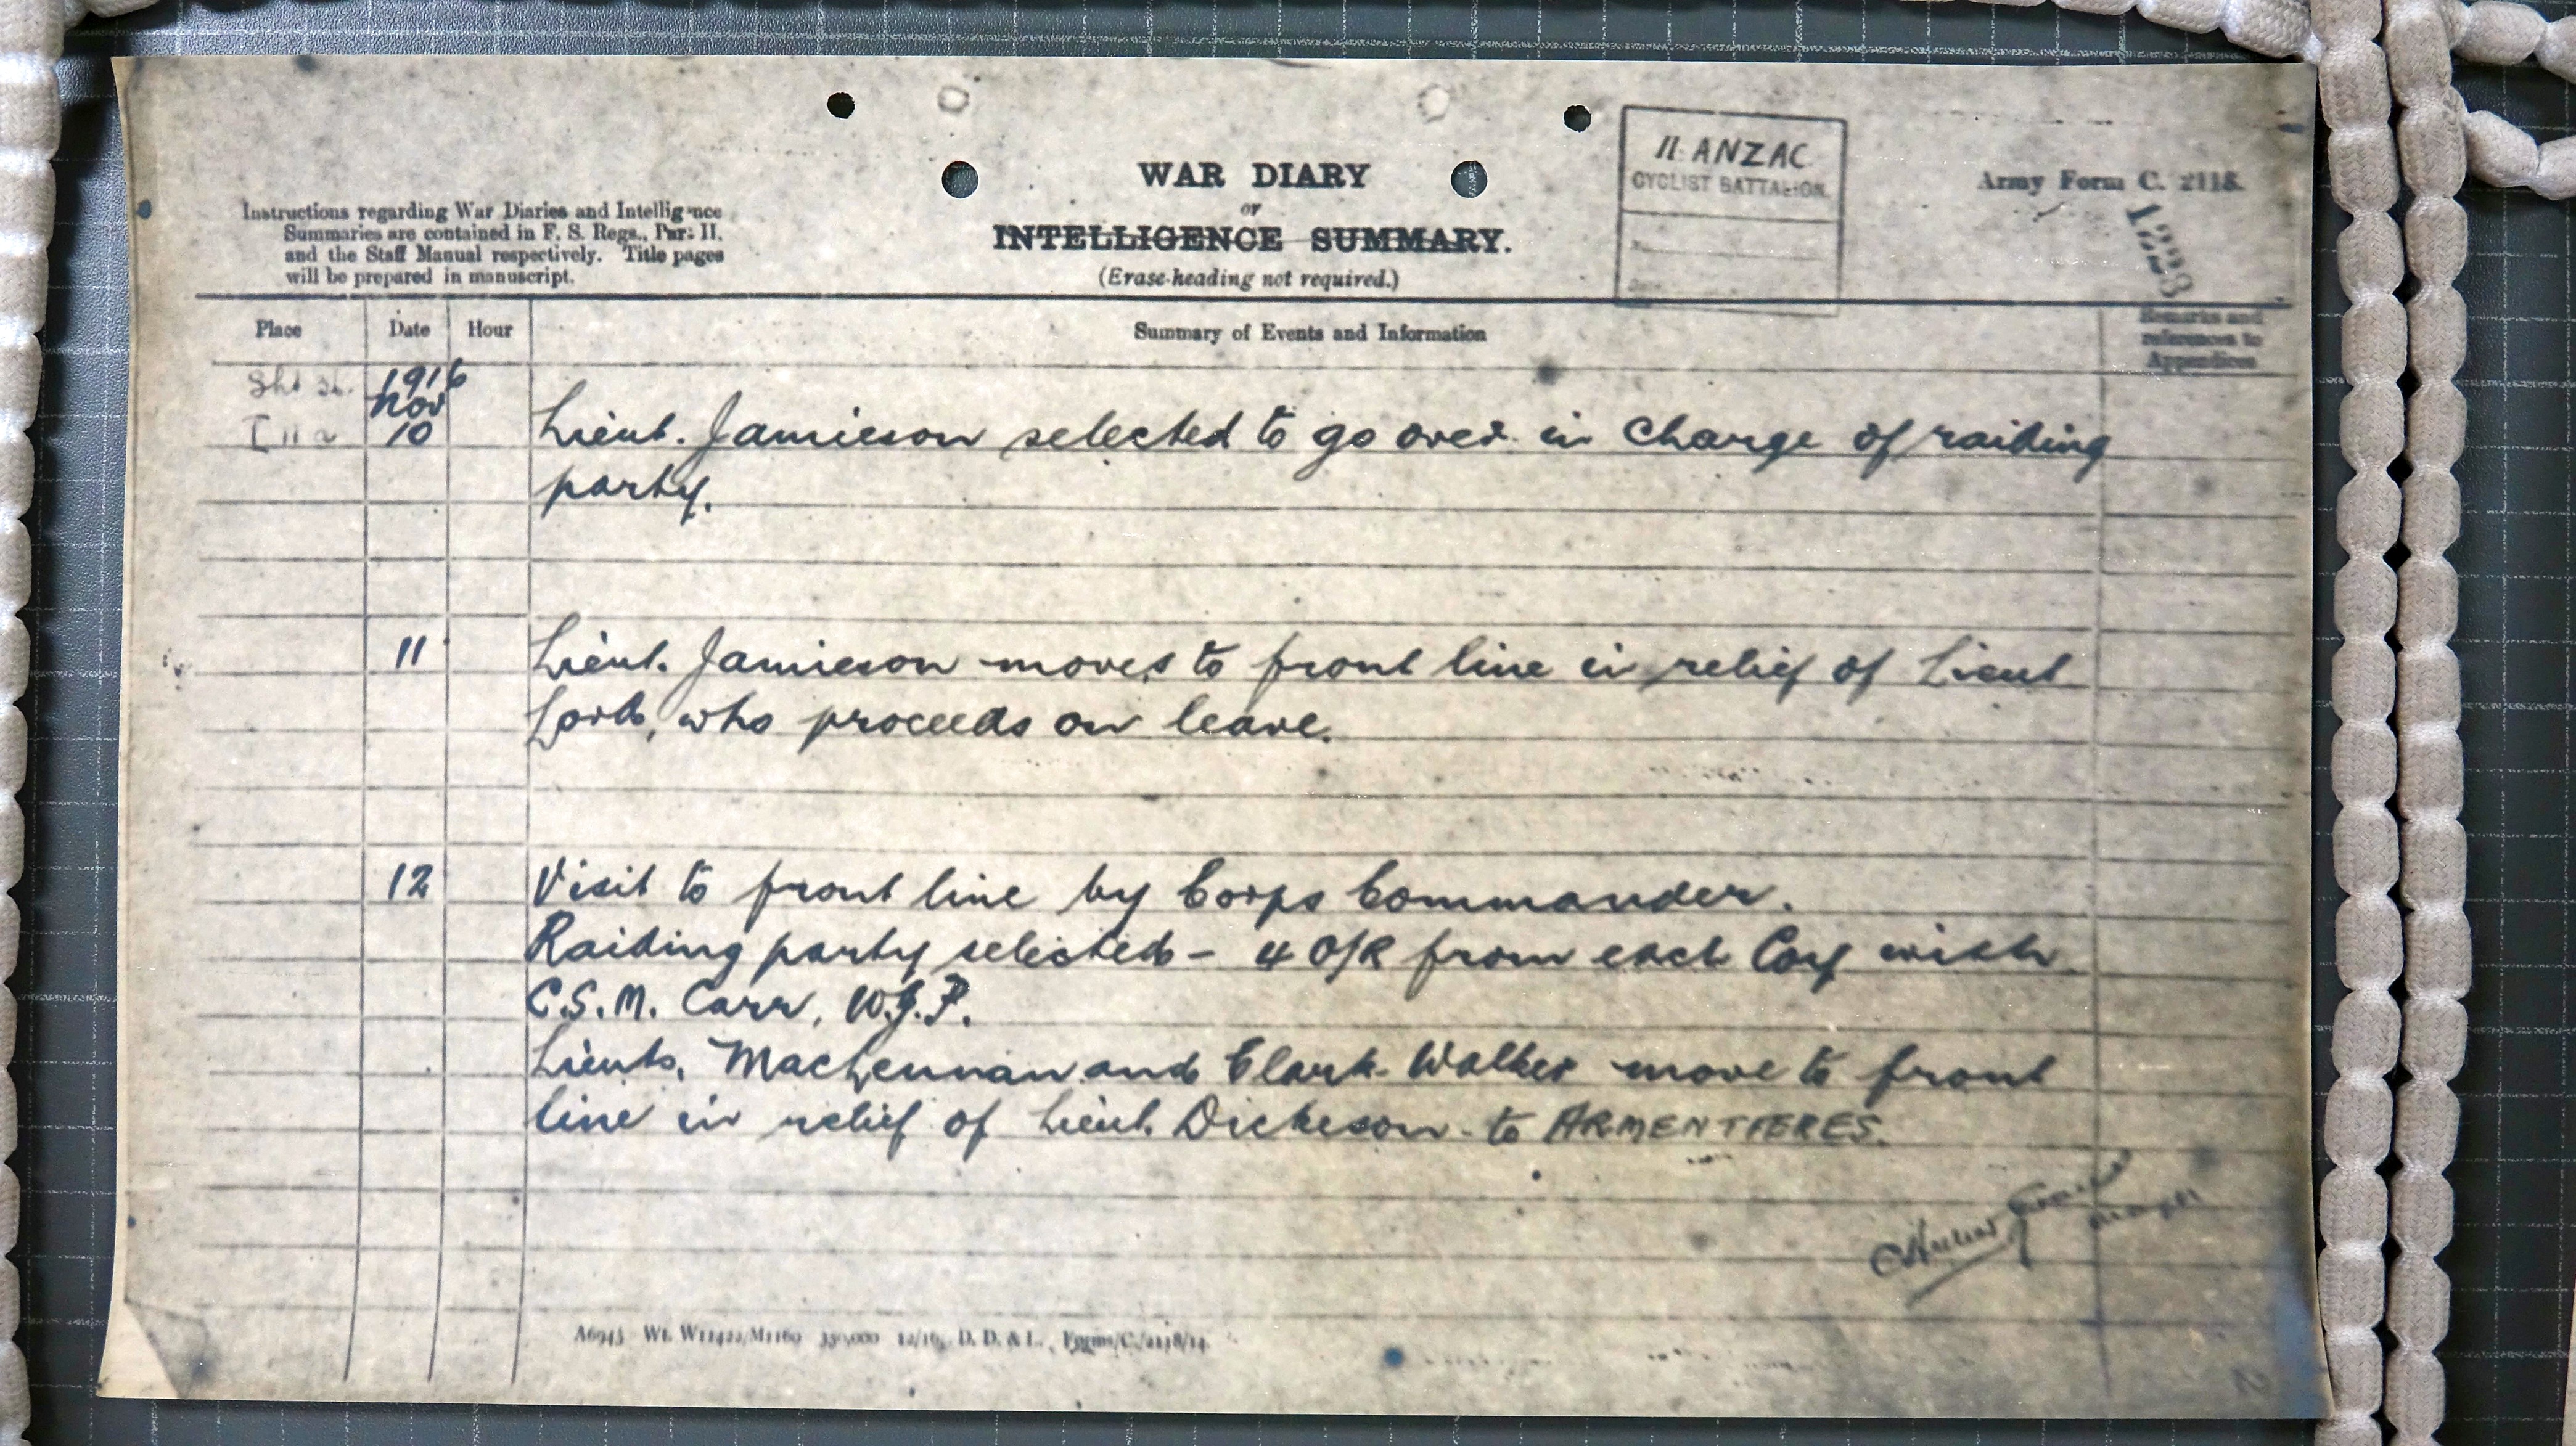 WAR DIARY
or
INTELLIGENCE SUMMARY.
(Erase heading not required.)
Instructions regarding War Diaries and Intelligence
Summaries are contained in F. S. Regs., Part II.
and the Staff Manual respectively. Title pages
will be prepared in manuscript.
II ANZAC
CYCLIST BATTALION.
Army Form C. 2118.
Place Date Hour Summary of Events and Information Remarks and
references to
Appendices
1916
Nov
10 Lieut. Jamieson selected to go over in charge of raiding
party.
11 Lieut. Jamieson moves to front line in relief of Lieut
Lord, who proceeds on leave.
12 Visit to front line by Corps Commander.
Raiding party selected - 4 O/R from each Coy with
C.S.M. Carr, W.J.P.
Lieuts. MacLennan and Clark-Walker move to front
line in relief of Lieut. Dickeson to ARMENTIERES.
A6945 Wt. W11422/M1160 350,000 12/16 D. D. & L. Forms/C./2118/14.